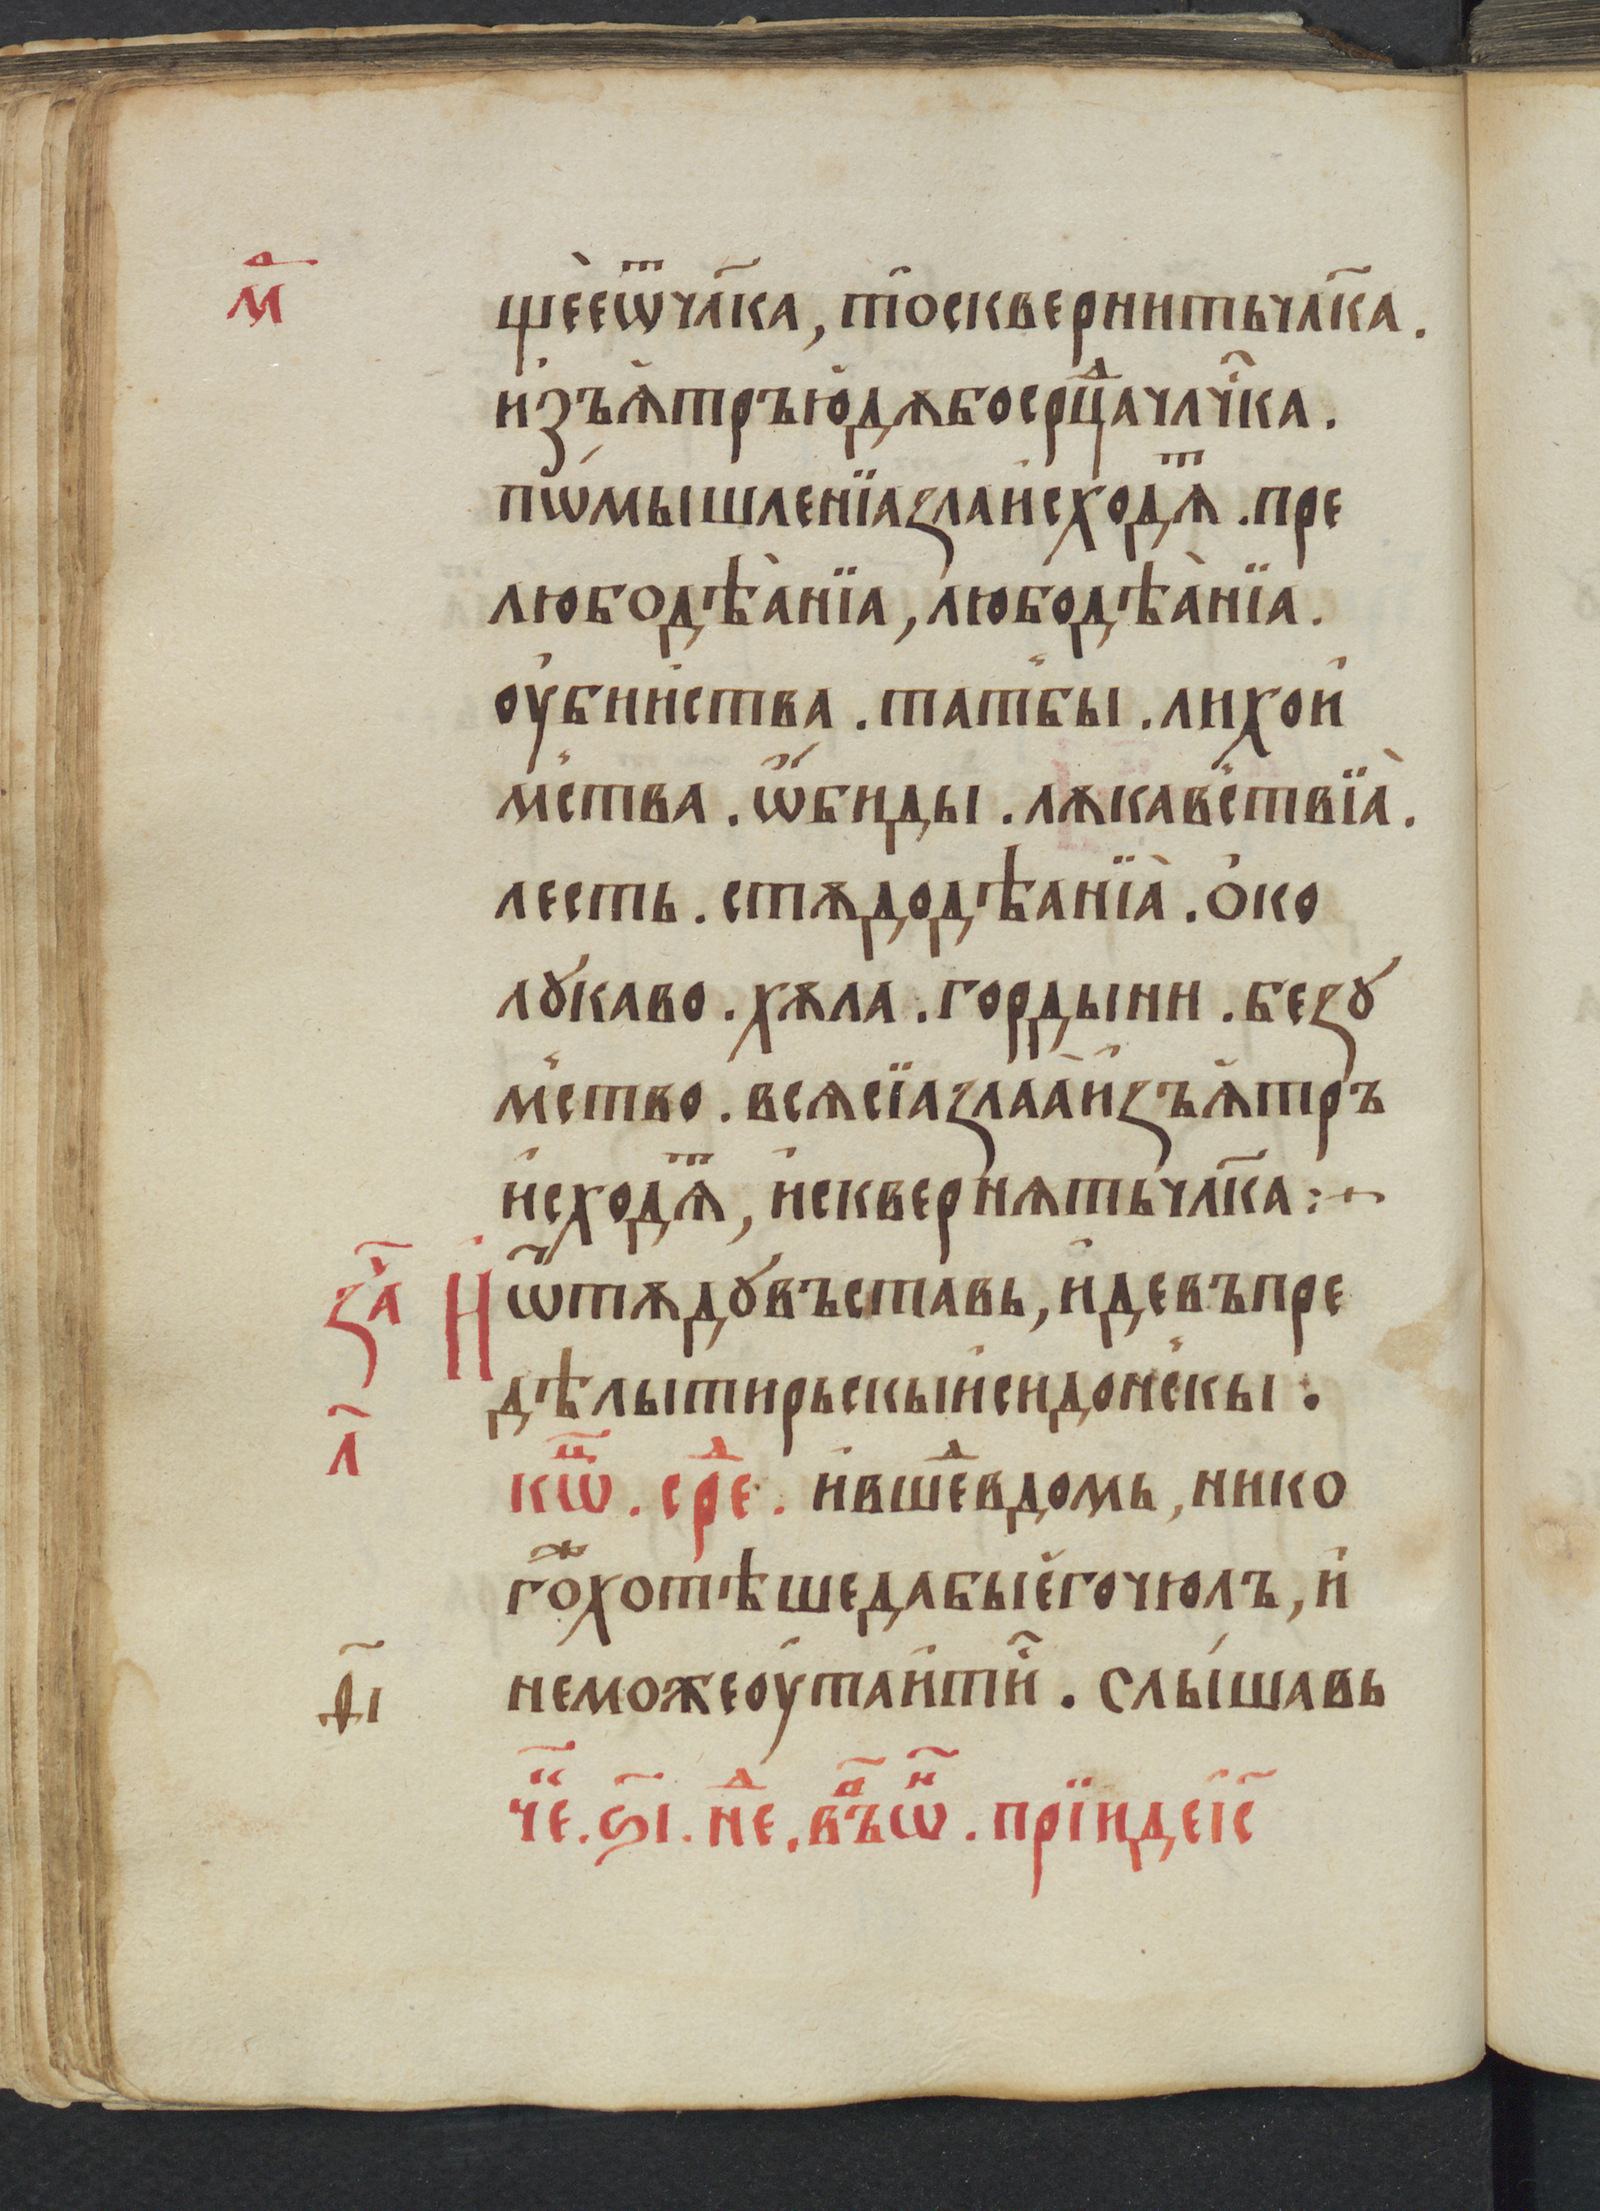 м҃д
щѐеѿчл҃ка, т҃осквернитьчл҃ка.
и҆зъѫ҆тръю҆дѫбосрⷣцачлч҃ка.
пѡ́мышленїаѕлаи҆сходѧⷮ. пре
любодѣа̀нїа, любодѣа̀нїа.
оу҆бии҆ства. тат҆бы. лихои҆
м҆ства. ѡ҆́биды. лѫкав҆ствїа̀.
лесть. стѫдодѣанїа̀. о҆ко
лꙋкаво. хѫла. гордыни. беꙁꙋ
м҆ство. всѧсїаѕлаа̀и҆ꙁъѫ҆тръ
и҆сходѧⷮ, и҆сквернѧтьчл҃ка :~
за҃ч
И҆ѿтѫдꙋвъставь, и҆девъпре
дѣлытирьскыи҆сидон҆скы:
л҃
кѡⷰ҇. срⷣе. и҆вшеⷣвдомь, нико
гоⷤхотѣшедабыег҆очюлъ, и҆
неможеоу҆таи҆ти҆. слы́шавь
ѳ҃і
чеⷦ҇. ѕ҃і. неⷣ. въⷪ҇ѡⷩ҇. прїидеі҃с